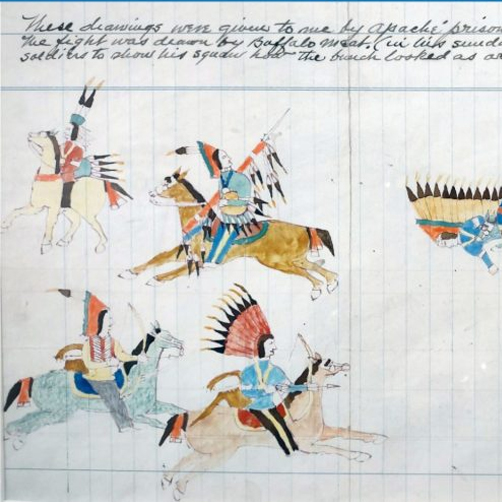 These drawings were given to me by Apache prison
The fight was drawn by Buffalo Meat. (in lieu
soldiers to show his squaw how the bunch looked as